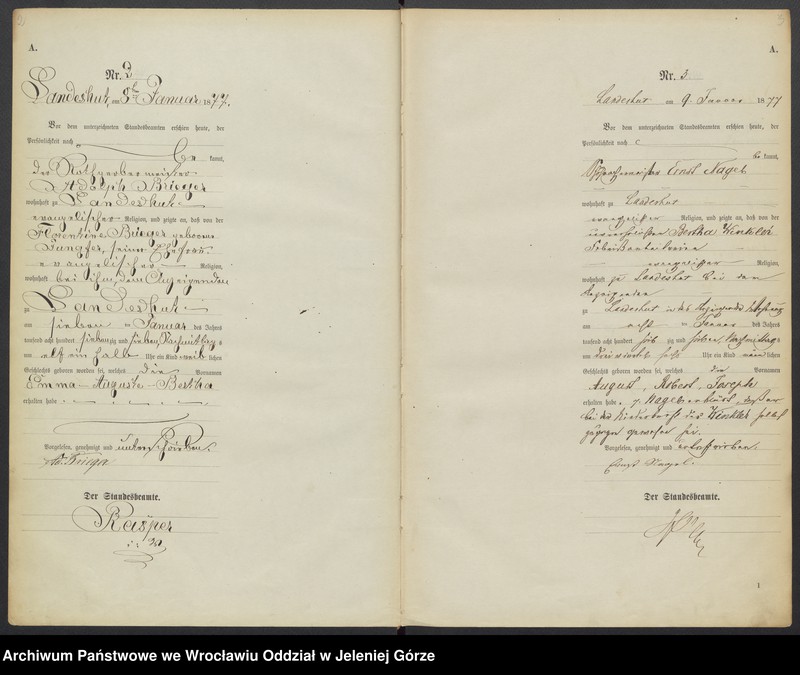 2
A.
Nr. 2
Landeshut, am 8ten Januar 1877.
Vor dem unterzeichneten Standesbeamten erschien heute, der
Persönlichkeit nach
kannt,
der Rothgerbermeister
Adolph Brieger
wohnhaft zu Landeshut
evangelischer Religion, und zeigte an, daß von der
Florentine Brieger geborene
seiner Ehefrau
evangelischer Religion,
wohnhaft bei ihm, dem Anzeigenden
zu Landeshut
am sieben ten Januar des Jahres
tausend acht hundert siebenzig und sieben Vormittags
um elf ein halb Uhr ein Kind weib lichen
Geschlechts geboren worden sei, welches die Vornamen
Emma Auguste Bertha
erhalten habe
Vorgelesen, genehmigt und unterschrieben.
A. Brieger
Der Standesbeamte.
Rasper
3
A.
Nr. 3
Landeshut am 9. Januar 1877
Vor dem unterzeichneten Standesbeamten erschien heute, der
Persönlichkeit nach
be kannt,
Ernst Nagel
wohnhaft zu Landeshut
evangelischer Religion, und zeigte an, daß von der
unverehelichten Bertha Winkler
Fabrikarbeiterin
evangelischer Religion,
wohnhaft zu Landeshut bei dem
Anzeigenden
zu Landeshut in des Anzeigenden
am acht ten Januar des Jahres
tausend acht hundert sieb zig und sieben, Nachmittags
um Uhr ein Kind männ lichen
Geschlechts geboren worden sei, welches die Vornamen
August, Robert, Joseph
erhalten habe
bei der Niederkunft der Winkler selbst
zugegen gewesen sei.
Vorgelesen, genehmigt und unterschrieben.
Ernst Nagel.
Der Standesbeamte.
1
Archiwum Państwowe we Wrocławiu Oddział w Jeleniej Górze